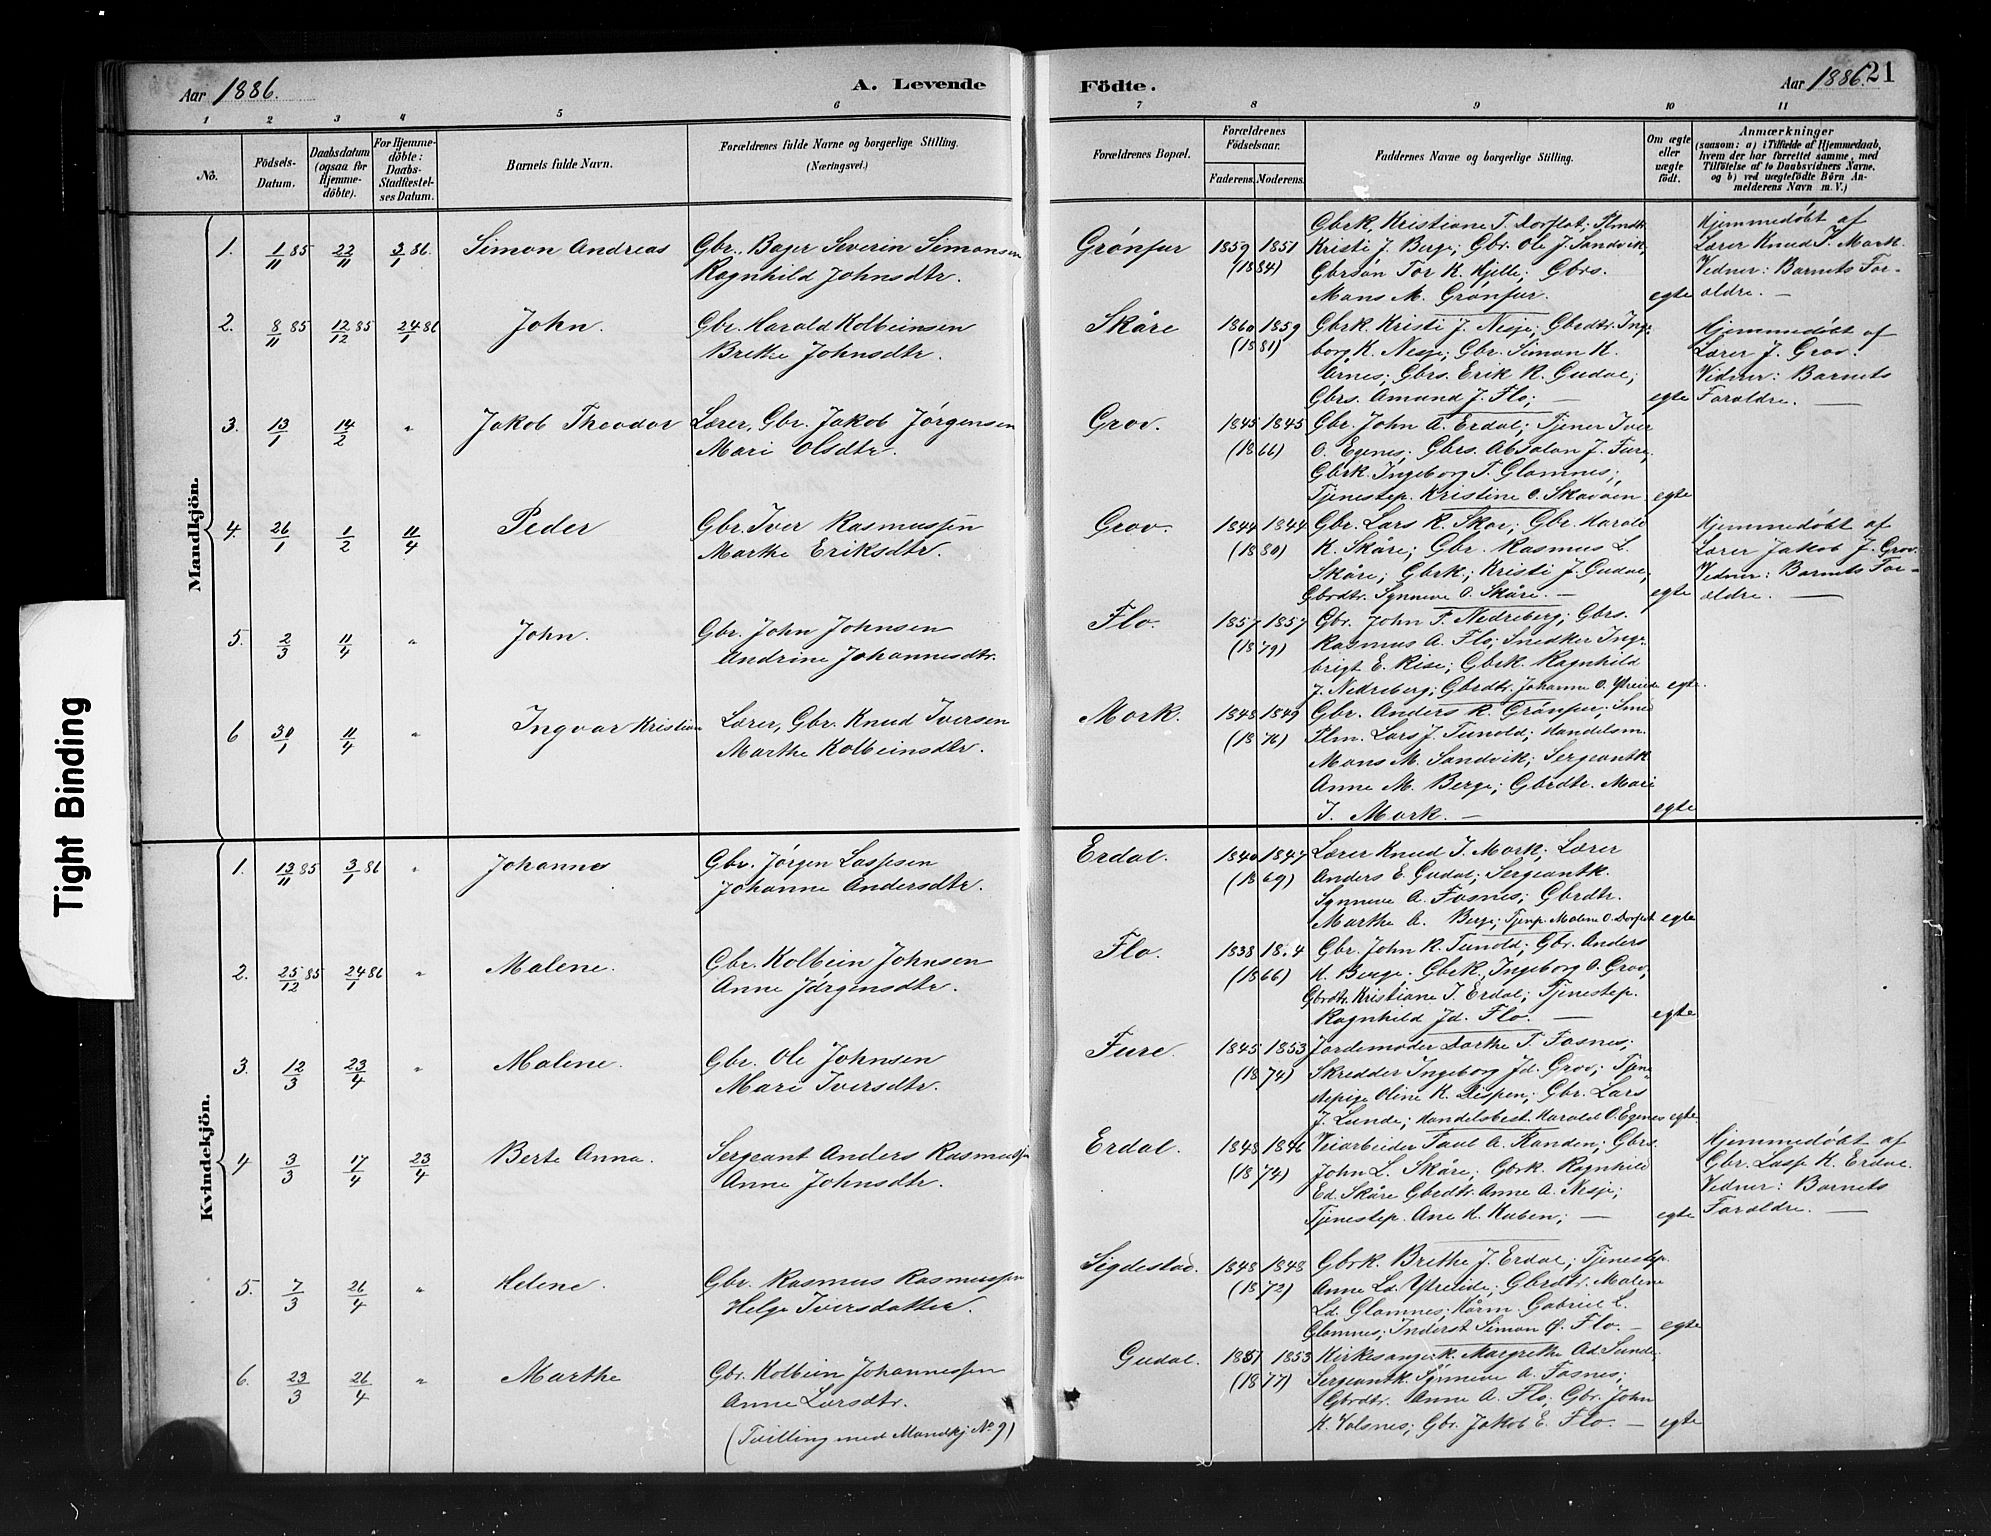 Aar 1886.
A. Levende
Födte.
Aar 1886.
21
1 2 3 4 5 6 7 8 9 10 11
No.
Födsels-Datum.
Daabsdatum (ogsaa for Hjemme-döbte).
For Hjemme-döbte: Daabs-Stadfæstel-ses Datum.
Barnets fulde Navn.
Forældrenes fulde Navne og borgerlige Stilling. (Næringsvei.)
Forældrenes Bopæl.
Forældrenes Födselsaar.
Faderens. Moderens.
Faddernes Navne og borgerlige Stilling.
Om ægte eller uægte födt.
Anmærkninger
(saasom: a) i Tilfælde af Hjemmedaab, hvem der har forrettet samme, med Tilföielse af to Daabsvidners Navne, og b) ved uægtefödte Börn An-melderens Navn m. V.)
Mandkjön.
1. 1/11 85 22/11 3/1 86 Simon Andreas
Gbr. Bager Severin Simonsen
Ragnhild Johnsdtr.
Grönfur 1859 1851
(1884)
Gbrk. Kristiane T. Dorflot; Plmdtr.
Kristi J. Berge; Gbr. Ole J. Sandvik,
Gbrsön Tor K. Hjelle; Gbrs.
Mons M. Grönfur. egte
Hjemmedöbt af
Lærer Knud I. Mork.
Vidner: Barnets For-
ældre. —
2. 8/11 85 12/12 85 24/1 86 John.
Gbr. Harald Kolbeinsen
Brithe Johnsdtr.
Skåre 1860 1859
(1881)
Gbrk. Kristi J. Nesje; Gbrdtr. Inge-
borg K. Nesje; Gbr. Simon K.
Årnes; Gbrs. Erik R. Gudal;
Gbrs. Amund J. Flo; — egte
Hjemmedöbt af
Lærer J. Grov.
Vidner: Barnets
Forældre. —
3. 13/1 14/2 " Jakob Theodor
Lærer, Gbr. Jakob Jörgensen
Mari Olsdtr.
Grov. 1845 1845
(1866)
Gbr. John A. Erdal; Tjener Iver
O. Egenes; Gbrs. Absalon J. Fure,
Gbrk. Ingeborg T. Glomnes;
Tjenestep. Kristine O. Skavöen. egte
4. 26/1 1/2 11/4 Peder
Gbr. Iver Rasmussen
Marthe Eriksdtr.
Grov 1844 1844
(1880)
Gbr. Lars R. Skar; Gbr. Harald
K. Skåre; Gbr. Rasmus L.
Skåre; Gbrk; Kristi J. Gudal,
Gbrdtr. Synneve O. Skåre. — egte
Hjemmedöbt af
Lærer Jakob J. Grov.
Vidner: Barnets For-
ældre. —
5. 2/3 11/4 " John.
Gbr. John Johnsen
Andrine Johannesdtr.
Flo. 1857 1857
(1879)
Gbr. John P. Nedreberg; Gbrs.
Rasmus A. Flo; Snedker Inge-
brigt E. Rise; Gbrk. Ragnhild
J. Nedreberg; Gbrdtr. Johanne O. Ytreide egte.
6 30/1 11/4 " Ingvar Kristian
Lærer, Gbr. Knud Iversen
Marthe Kolbeinsdtr.
Mork. 1848 1849
(1876)
Gbr. Anders R. Grönfur; Smed
Plm. Lars J. Tunold; Handelsm.
Mons M. Sandvik; Sergeantk.
Anne M. Berge; Gbrdtr. Mari
I. Mork. — egte
Kvindekjön.
1. 13/11 85 3/1 86 " Johanne
Gbr. Jörgen Laspesen
Johanne Andersdtr.
Erdal. 1840 1847
(1869)
Lærer Knud I. Mork; Lærer
Anders E. Gudal; Sergeantk.
Synneve A. Fosnes; Gbrdtr.
Marthe A. Berge; Tjenp. Malene O. Dorflot egte
2. 25/12 85 24/1 86 " Malene.
Gbr. Kolbein Johnsen
Anne Jörgensdtr.
Flo. 1838
(1866)
Gbr. John R. Tunold; Gbr. Anders
H. Berge. Gbrk. Ingeborg O. Grov,
Gbrdtr. Kristiane J. Erdal; Tjenestep.
Ragnhild Jd. Flo. — egte
3. 12/3 23/4 " Malene.
Gbr. Ole Johnsen
Mari Iversdtr.
Fure. 1845 1853
(1874)
Jordemoder Dorthe T. Fosnes;
Skrædder Ingeborg Jd. Grov; Tjene-
stepige Oline K. Dispen; Gbr. Lars
J. Lunde; Handelsbest. Harald O. Egenes egte.
4. 3/3 17/4 23/4 Berte Anna.
Sergeant Anders Rasmussen
Anne Johnsdtr.
Erdal. 1848 1846
(1874)
Veiarbeider Paul A. Randen; Gbrs.
John L. Skåre; Gbrk. Ragnhild
Ed. Skåre Gbrdtr. Anne A. Nesje;
Tjenestep. Ane H. Kuben; — egte
Hjemmedöbt af
Gbr. Lasp H. Erdal.
Vidner: Barnets
Forældre. —
5. 7/3 26/4 " Helene.
Gbr. Rasmus Rasmussen
Helge Iversdatter.
Sigdestad. 1848 1848
(1872)
Gbrk. Brithe J. Erdal; Tjenestep.
Anne Ld. Ytreeide; Gbrdtr. Malene
Ld. Glomnes; Kårm. Gabriel L.
Glomnes; Inderst Simon Ø. Flo. — egte
6. 23/3 26/4 " Marthe
Gbr. Kolbein Johannessen
Anne Larsdtr.
(Tvilling med Mandkj. No 9)
Gudal. 1851 1853
(1877)
Kirkesangerk. Margrethe Ad. Sunde.
Sergeantk. Synneve A. Fosnes;
Gbrdtr. Anne A. Flo; Gbr. John
K. Volsnes; Gbr. Jakob E. Flo. — egte
Tight Binding